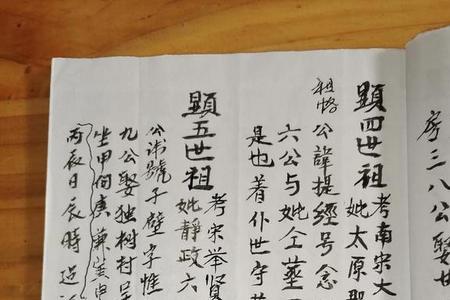 房三八公娶廿
顕四世祖考南宋大
妣太原郡
公諱提經号念
六公与妣仝墓
是也着仆世守
顕五世祖考宋举賢
妣静政六
公諱號子璧字惟
九公娶独树村
坐甲向庚兼
丙辰日辰時